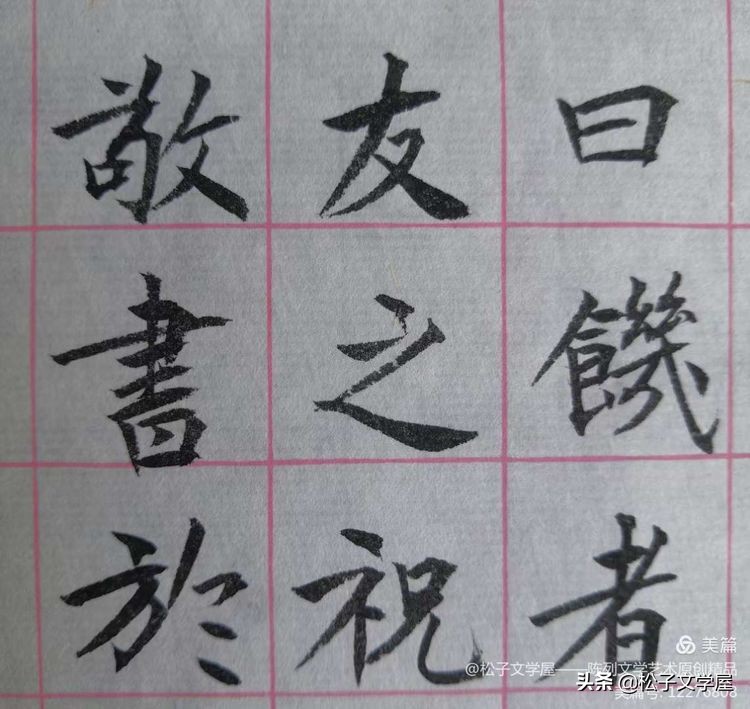 曰饑者
友之祝
敬書於
美篇
@松子文学屋——陈列文学艺术原创精品
美篇号: 12276808
头条 @松子文学屋